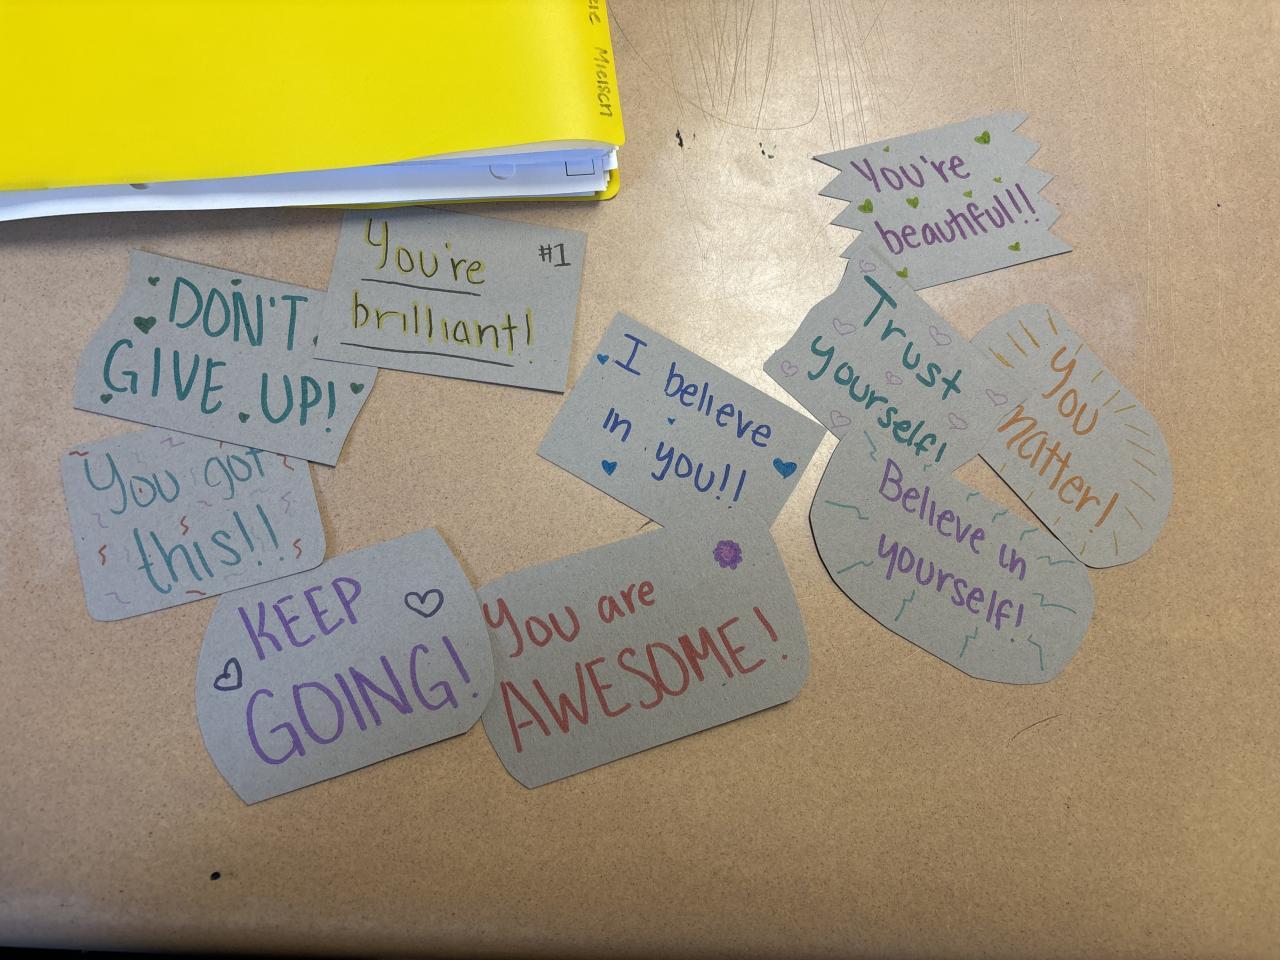 Mielsch
You're
beautiful!!
You're
#1
brilliant!
DON'T
GIVE UP!
I believe
in you!!
Trust
yourself!
You
matter!
You got
this!!
Believe in
yourself!
KEEP
GOING!
You are
AWESOME!